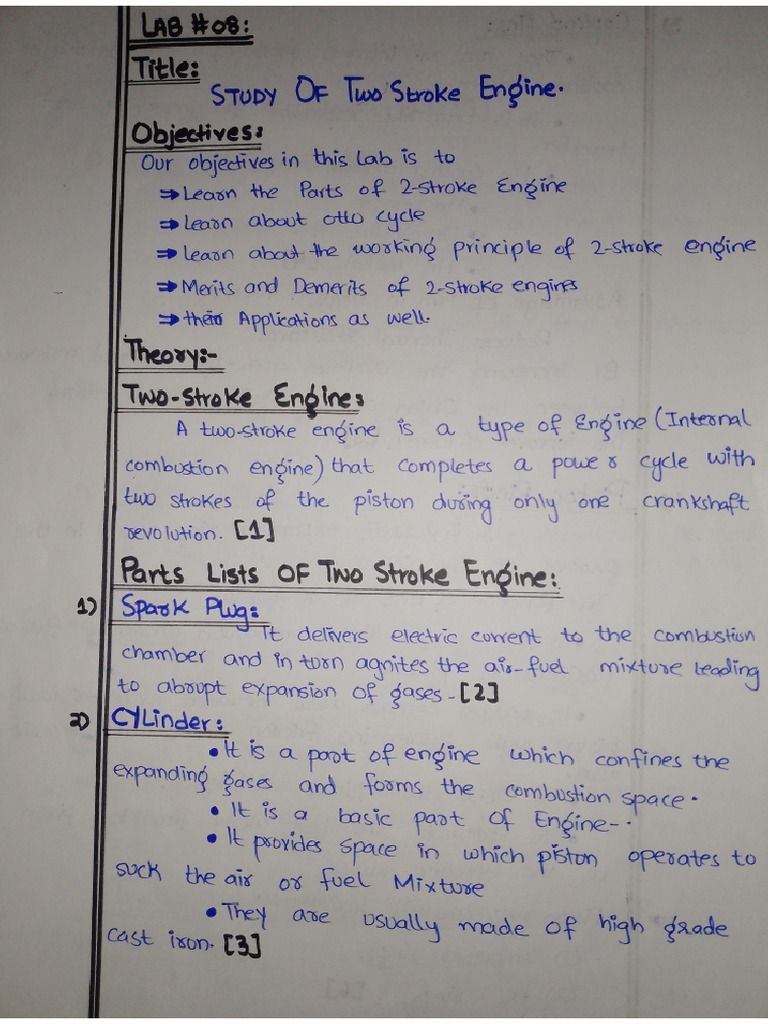 LAB # 08:
Title:
STUDY OF Two Stroke Engine.
Objectives:
Our objectives in this Lab is to
⇒ Learn the Parts of 2-stroke Engine
⇒ Learn about otto cycle
⇒ Learn about the working principle of 2-stroke engine
⇒ Merits and Demerits of 2-stroke engines
⇒ their Applications as well.
Theory:-
Two-stroke Engine:
A two-stroke engine is a type of Engine (Internal
combustion engine) that completes a power cycle with
two strokes of the piston during only one crankshaft
revolution. [1]
Parts Lists OF Two Stroke Engine:
1) Spark Plug:
It delivers electric current to the combustion
chamber and in torn agnites the air-fuel mixture leading
to abrupt expansion of gases - [2]
2) CYLinder:
• It is a part of engine which confines the
expanding gases and forms the combustion space.
• It is a basic part of Engine-.
• It provides space in which piston operates to
suck the air or fuel Mixture
• They are usually made of high grade
cast iron. [3]